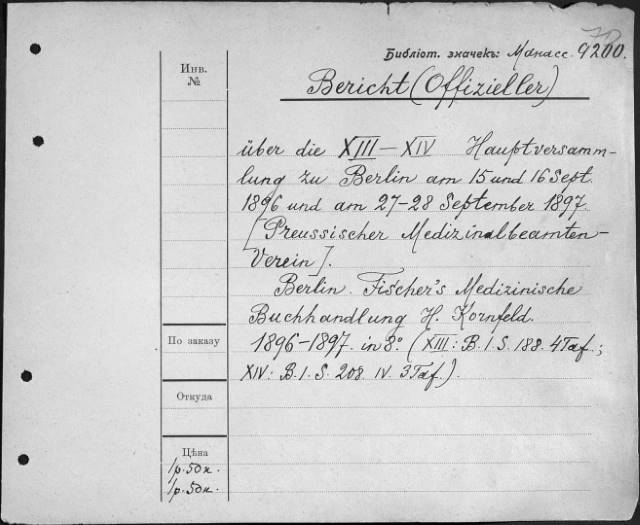 Библіот. значекъ: Манасс. 9200.
Инв.
№
Bericht (Offizieller)
über die XIII–XIV Hauptversamm-
lung zu Berlin am 15 und 16 Sept.
1896 und am 27–28 September 1897
[Preussischer Medizinalbeamten-
Verein].
Berlin. Fischer's Medizinische
Buchhandlung H. Kornfeld.
1896–1897. in 8º. (XIII: B. I. S. 188. 4 Taf.;
XIV: B. I. S. 208. IV. 3 Taf.).
По заказу
Откуда
Цѣна
1р. 50к.
1р. 50к.